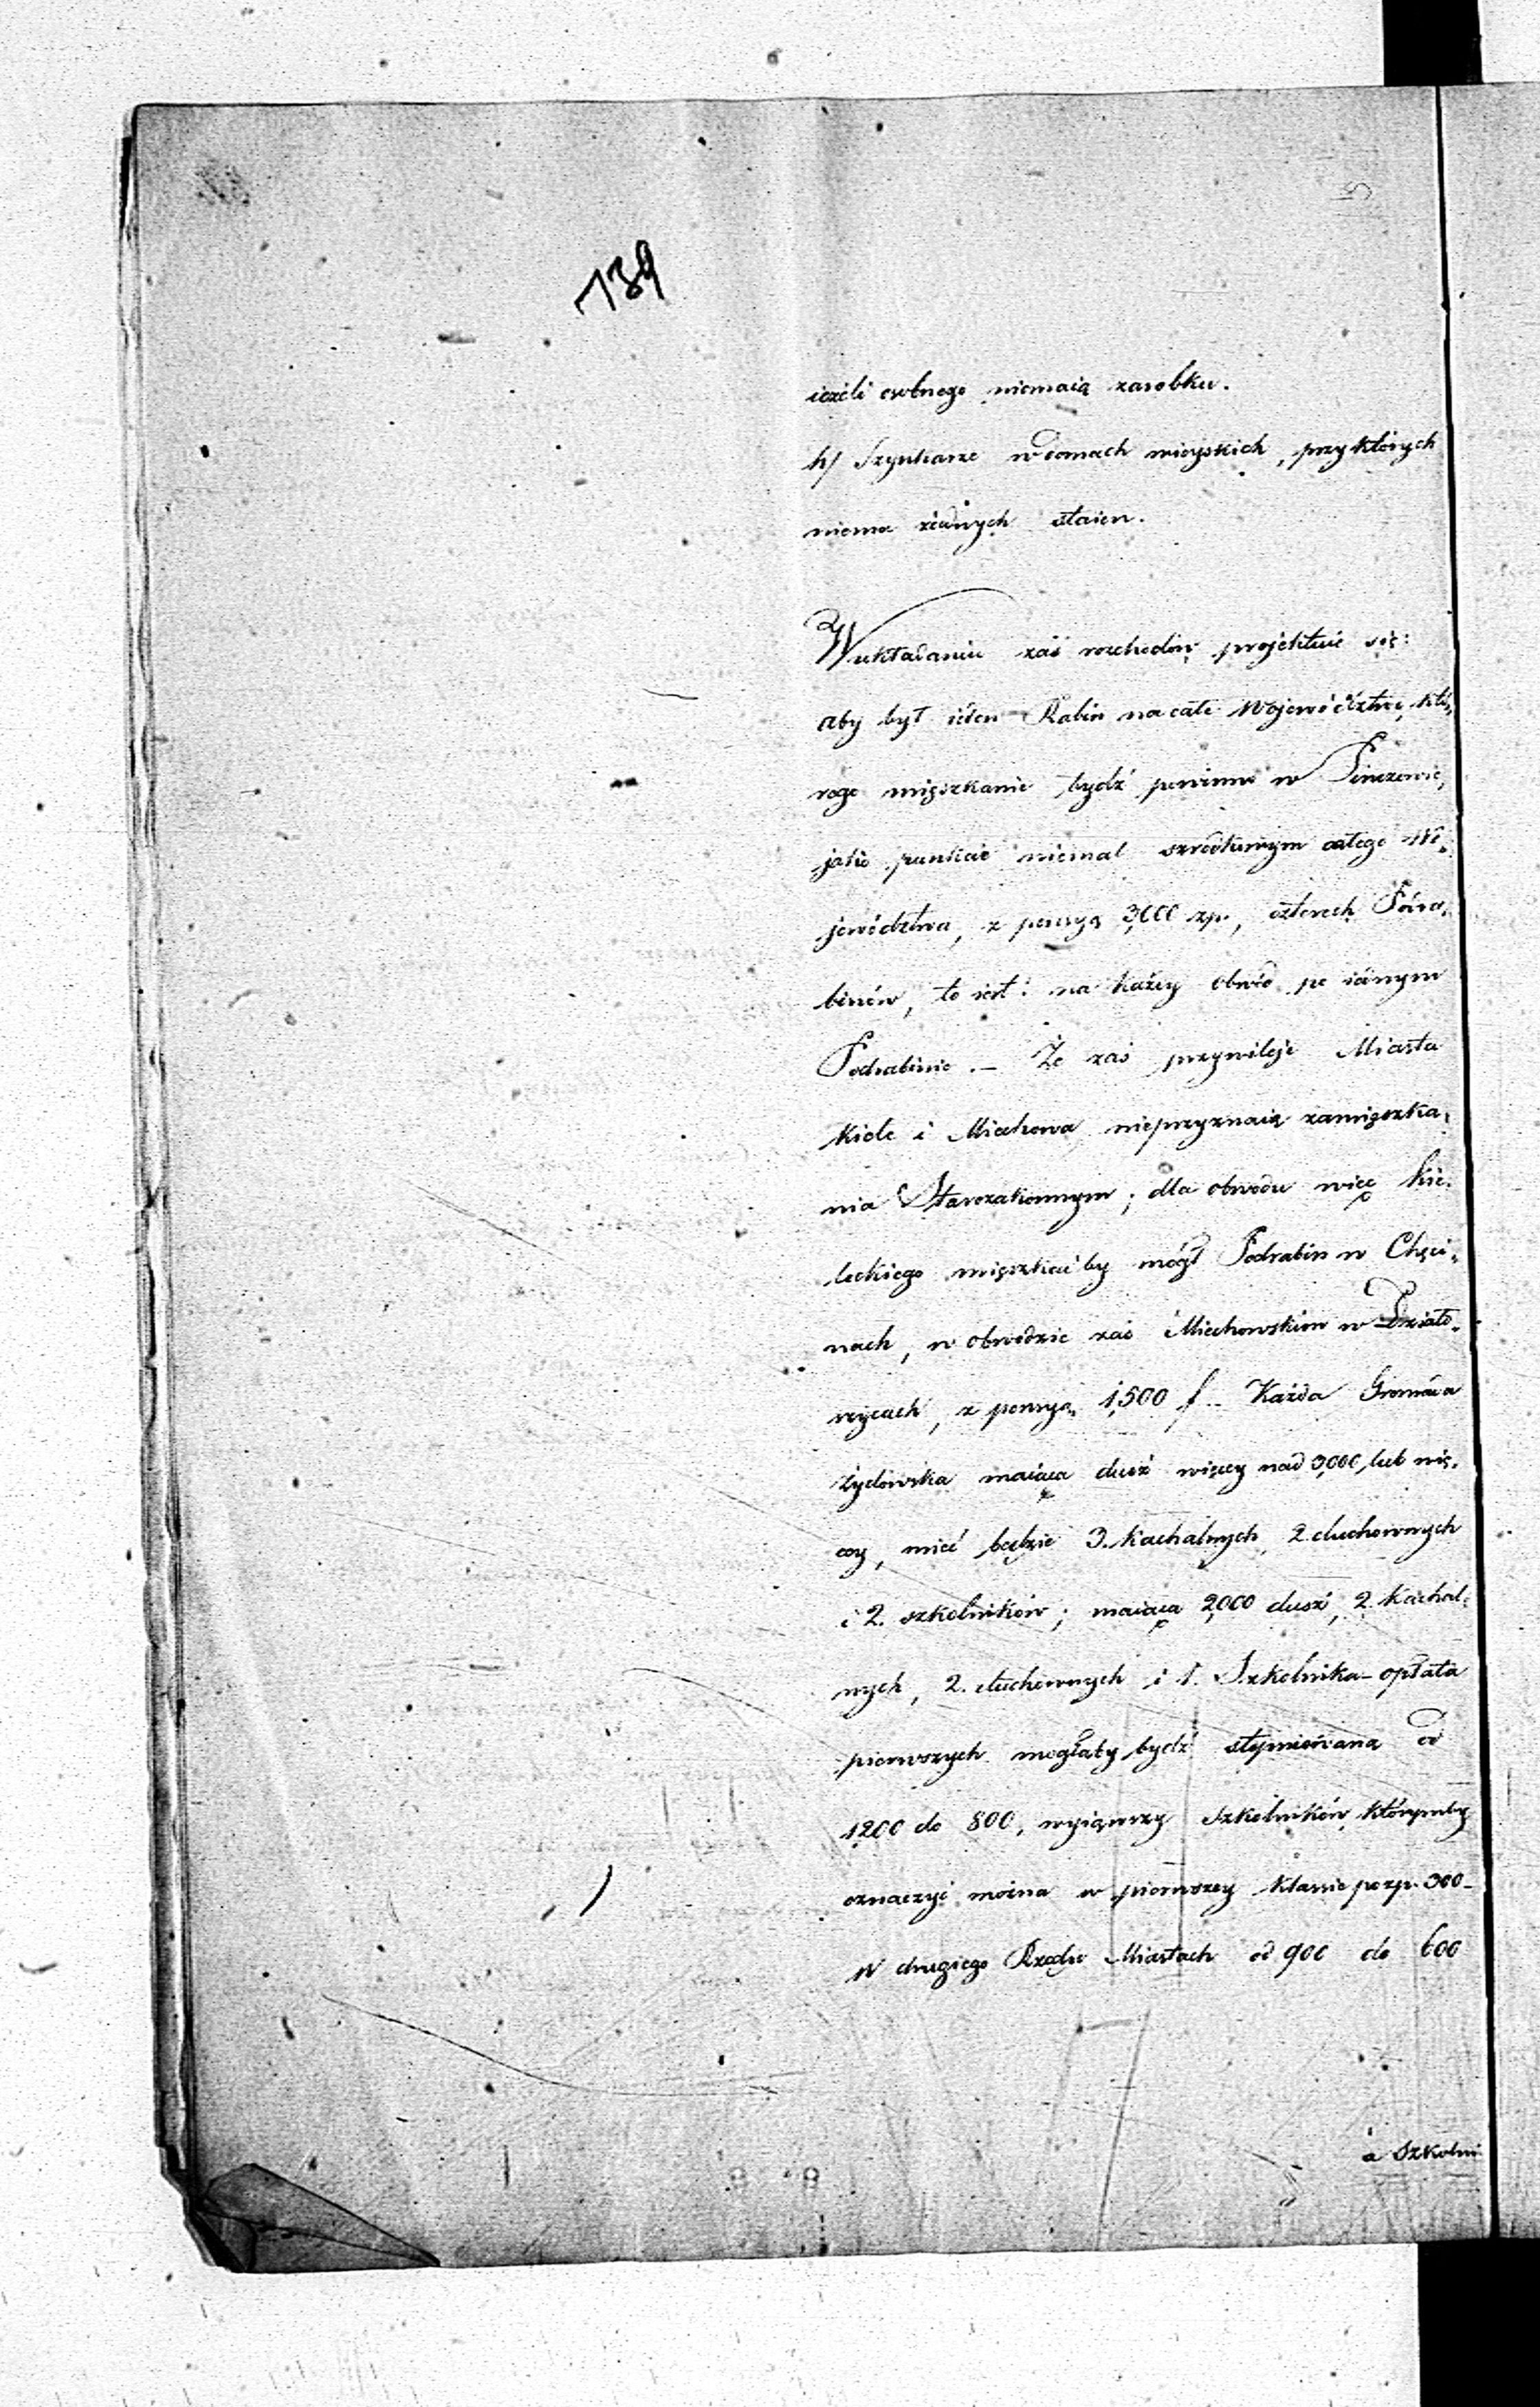 139
ieżeli osobnego niemaią zarobku.
h/ Szynkarze w domach mieyskich, przy których
niema żadnych staien.
W układaniu zaś rozchodów projektuie się:
aby był ieden Rabin na całe Województwo, któ„
rego mięszkanie bydź powinno w Pinczowie,
jako punkcie niemal szrodkowym całego Wo„
jewództwa, z pensyą 3,000 zp., czterech Podra„
binów, to iest: na każdy obwód po iednym
Podrabinie. — Że zaś przywileje Miasta
Kielc i Miechowa nieprzyznaią zamięszka„
nia Starozakonnym; dla obwodu więc Kie„
leckiego mięszkać by mógł Podrabin w Chęci„
nach, w obwodzie zaś Miechowskim w Działo„
szycach, z pensyą 1,500 f. Każda Gromada
Żydowska maiąca dusz więcey nad 3,000, lub wię„
cey, mieć będzie 3. Kachalnych, 2. duchownych
i 2. szkolników; maiąca 2,000 dusz, 2. Kachal„
nych, 2. duchownych i 1. Szkolnika – opłata
pierwszych mogłaby bydź stopniowana od
1,200 do 800, wyiąwszy Szkolników, którymby
oznaczyć można w pierwszey klassie po zp. 300 –
W drugiego Rzędu Miastach od 900 do 600
a Szkolni